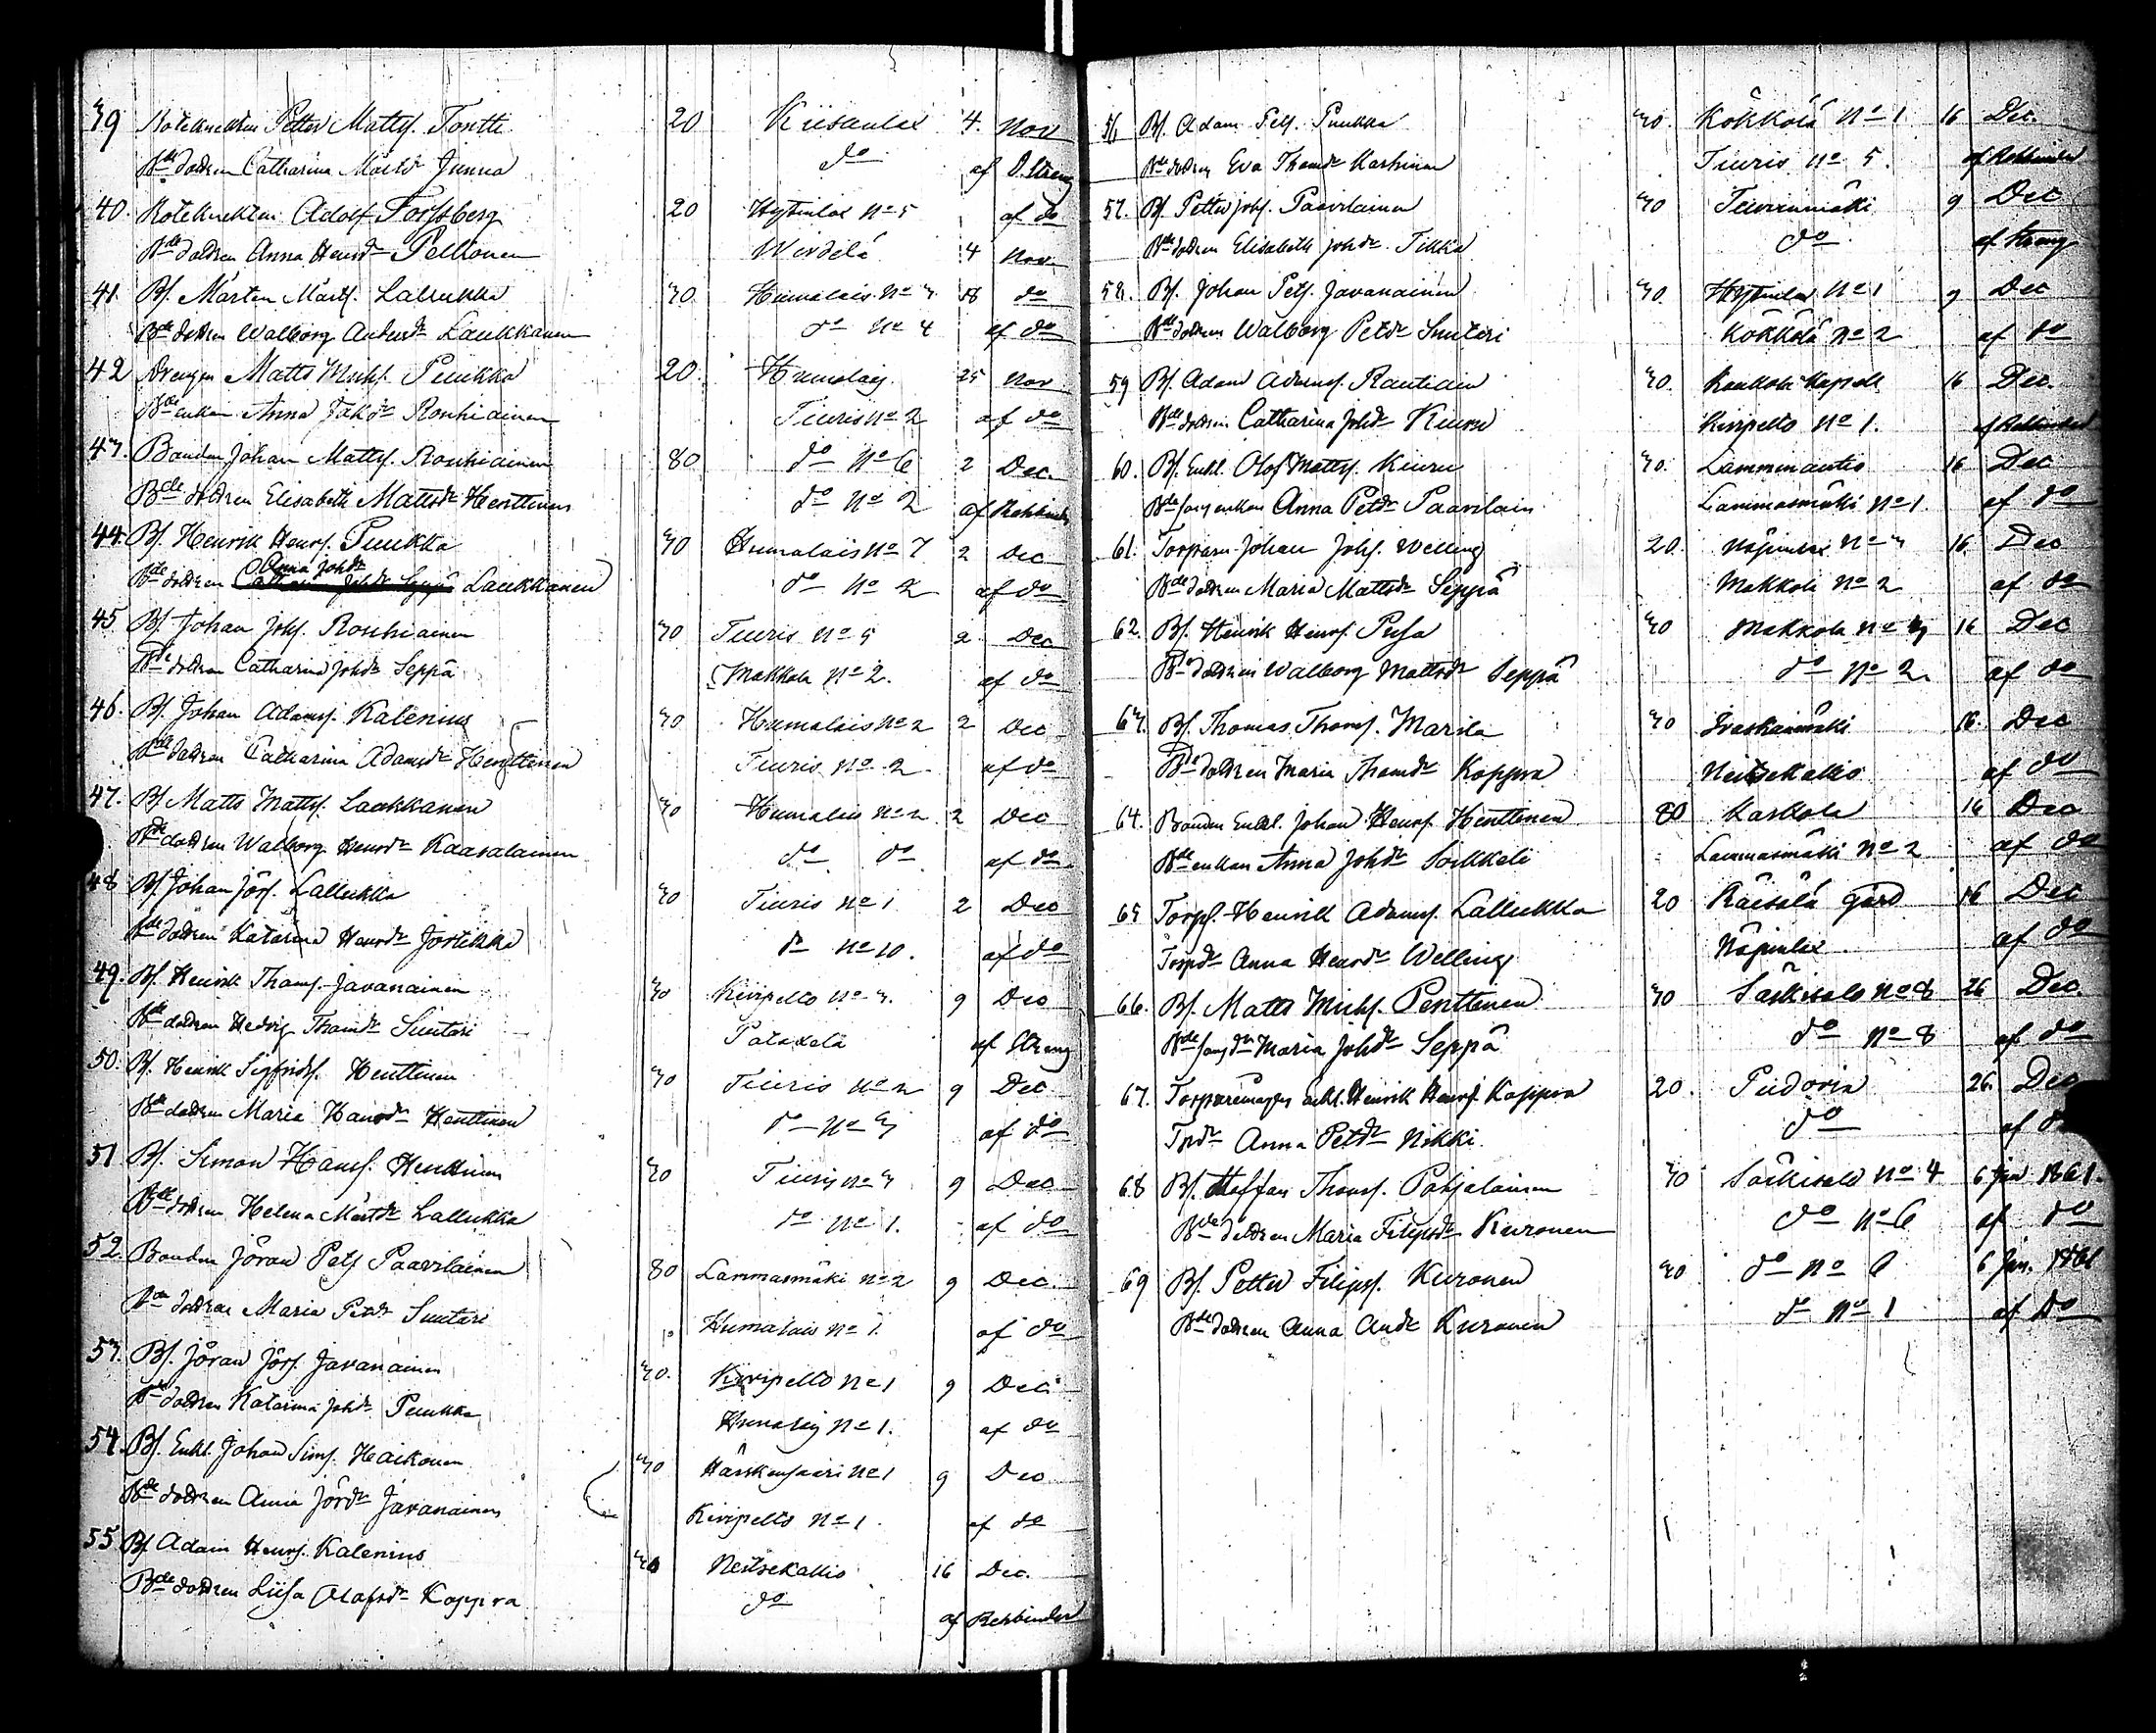 39 Roteknekten Petter Matts. Tontti 20 Kiisanlax 4. Nov
Bde dottren Catharina Märtsdr Junna do af D. Streng
40. Roteknekten Adolf Forssberg 20 Hytinlax No 5 af do
Bde dottren Anna Henrdr Pellonen Wirdelä 4 Nov
41. Bs. Mårten Märts. Lallukka 30. Humalais No 3 18 do
Bde dottren Walborg Andersdr Laukkanen do No 4 af do
42 Drengen Matts Michs. Puukka 20. Humalais. 25 Nov
Bde enkan Anna Jakodr Rouhiainen Tiuris No 2 af do
43. Bonden Johan Matts. Rouhiainen 80 do No 6 2 Dec
Bde dottren Elisabeth Mattsdr Henttinen do No 2 af Rehbinder
44. Bs. Henrik Henrs. Puukka 30 Humalais No 7 2 Dec
Bde dottren Anna Johdr Laukkanen do No 2 af do
45. Bs. Johan Johs. Rouhiainen 30 Tiuris No 5 2 Dec
Bde dottren Catharina Johdr Seppä Makkola No 2. af do
46. Bs. Johan Adams. Kalenius 30 Humalais No 2 2 Dec
Bde dottren Catharina Adamsdr Henttinen Tiuris No 2 af do
47. Bs Matts Matts. Laukkanen 30 Humalais No 2 2 Dec
Bde dottren Walborg Henrdr Kaasalainen do do af do
48 Bs. Johan Jörs. Lallukka 30 Tiuris No 1 2 Dec
Bde dottren Katarina Henrdr Jortikka do No 10. af do
49. Bs. Henrik Thoms. Javanainen 30 Kiripelto No 3. 9 Dec
Bde dottren Hedvig Thomdr Suutari Potakela af Streng
50. Bs. Henrik Sigfrids. Henttinen 30 Tiuris No 2 9 Dec
Bde dottren Maria Hansdr Henttinen do No 3 af do
51 Bs. Simon Hans. Henttinen 30 Tiuris No 3 9 Dec
Bde dottren Helena Märtdr Lallukka do No 1. af do
52. Bonden Jöran Pets Paavilainen 80 Lammasmäki No 2 9 Dec.
Bde dottren Maria Petdr Suutari Humalais No 1. af do
53. Bs. Jöran Jörs. Javanainen 30. Kiripelto No 1 9 Dec.
Bde dottren Katarina Johdr Puukka Humalais No 1. af do
54. Bs. Enkl. Johan Sims. Haikonen 30 Härskensaari No 1 9 Dec
Bde dottren Anna Jördr Javanainen Kiripelto No 1. af do
55 Bs. Adam Henrs. Kalenius 30 Neitsekallio 16 Dec.
Bde dottren Liisa Olofsdr Koppra do af Rehbinder
56 Bs. Adam Pets. Puukka 30. Kökkölä No 1 16 Dec.
Bde dottren Eva Thomdr Karhinen Tiuris No 5. af Rehbinder
57. Bs. Petter Johs. Paavilainen 30 Tiurinmäki 9 Dec
Bde dottren Elisabeth Johdr Tikka do af Streng
58. Bs. Johan Pets. Javanainen 30. Hytinlax No 1 9 Dec
Bde dottren Walborg Petdr Suutari Kökkölä No 2 af do
59 Bs. Adam Adams. Rautiain 30. Kaukola Kapell 16 Dec.
Bde dottren Catharina Johdr Kiuru Kiripelto No 1. af Rehbinder
60. Bs. Enkl. Olof Matts. Kiuru 30. Lamminautio 16 Dec
Bde enkan Anna Petdr Paavilain Lammasmäki No 1. af do
61. Torparen Johan Johs. Welling 20. Näpinlax No 3 16. Dec
Bde dottren Maria Mattsdr Seppä Makkola No 2 af do
62. Bs. Henrik Henrs. Pusa 30 Makkola No 3 16 Dec
Bde dottren Walborg Mattsdr Seppä do No 2. af do
63. Bs. Thomas Thoms. Marila 30 Ivaskanmäki 16. Dec
Bde dottren Maria Thomdr Koppra Neitsekallio af do
64. Bonden Enkl. Johan Henrs. Henttinen 80 Kaskola 16 Dec
Bde enkan Anna Johdr Soikkeli Lammasmäki No 2 af do
65 Torps. Henrik Adams. Lallukka 20 Räisälä gård 16 Dec
Torpdr Anna Henrdr Welling Näpinlax af do
66. Bs. Matts Michs. Penttinen 30 Särkisalo No 8 26 Dec.
Bde Maria Johdr Seppä do No 8 af do
67. Torparemågen enkl. Henrik Henrs. Koppra 20. Pudoria 26. Dec
Tpdr Anna Petdr Nikki. do af do
68 Bs. Staffan Thoms. Pohjalainen 30 Särkisalo No 4 6 Jan 1861.
Bde dottren Maria Filipsdr Kuronen do No 6 af do
69 Bs. Petter Filips. Kuronen 30 do No 6 6 Jan. 1861
Bde dottren Anna Anddr Kuronen do No 1 af do